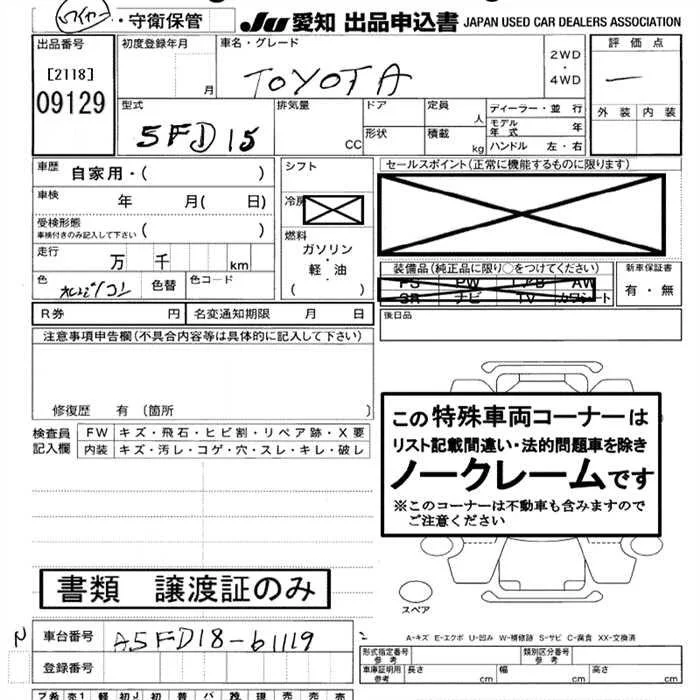 ・守衛保管 JU 愛知 出品申込書 JAPAN USED CAR DEALERS ASSOCIATION
出品番号 初度登録年月 車名・グレード 評価点
[2118] 月 TOYOTA 2WD・4WD —
09129 外装 内装
型式 排気量 ドア 定員 人 ディーラー・並行
5FD15 CC 形状 積載 kg モデル年式 年
ハンドル 左・右
車歴 自家用・( ) シフト セールスポイント(正常に機能するものに限ります)
車検 年 月( 日) 冷房
受検形態 ( )
車検付きのみ記入して下さい
燃料
走行 万 千 km ガソリン・軽・油
( )
色 色替 色コード 装備品(純正品に限り○をつけてください) 新車保証書
PS PW エアB AW 有・無
SR ナビ TV カワシート
R券 円 名変通知期限 月 日 後日品
注意事項申告欄(不具合内容等は具体的に記入して下さい)
修復歴 有 (箇所 )
検査員記入欄 FW キズ・飛石・ヒビ割・リペア跡・X要
内装 キズ・汚レ・コゲ・穴・スレ・キレ・破レ
この特殊車両コーナーは
リスト記載間違い・法的問題車を除き
ノークレームです
※このコーナーは不動車も含みますので
ご注意ください
書類 譲渡証のみ
スペア
N 車台番号 A5FD18-61119
A-キズ E-エクボ U-凹み W-補修跡 S-サビ C-腐食 XX-交換済
登録番号
形式指定番号 参考 類別区分番号 参考
車庫証明用 参考 長さ 幅 高さ